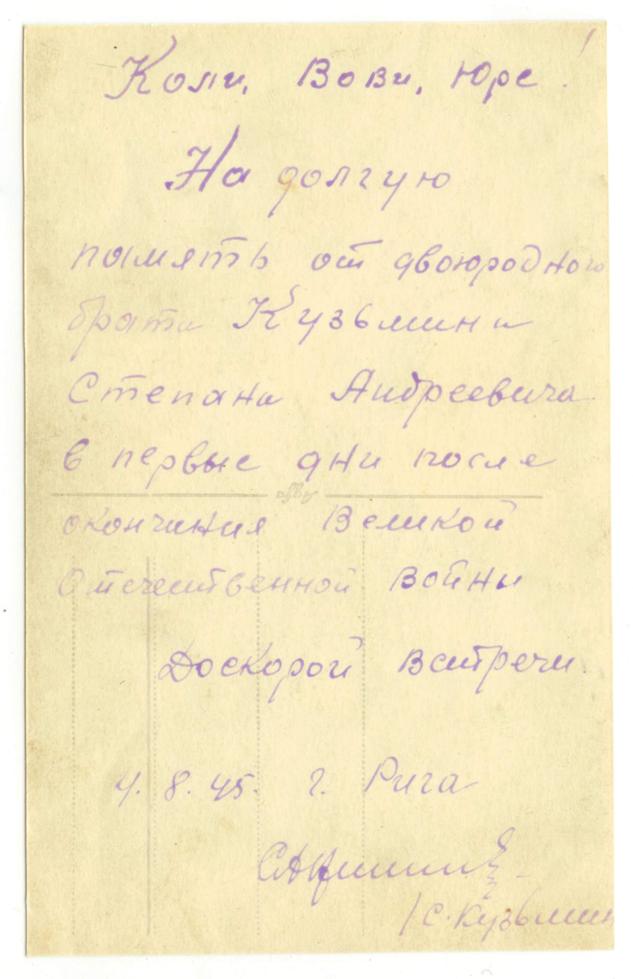 Коли, Вови, Юре!
На долгую
память от двоюродного
брата Кузьмина
Степана Андреевича
в первые дни после
окончания Великой
Отечественной войны
Доскорой встречи.
4. 8. 45. г. Рига
/С. Кузьмин